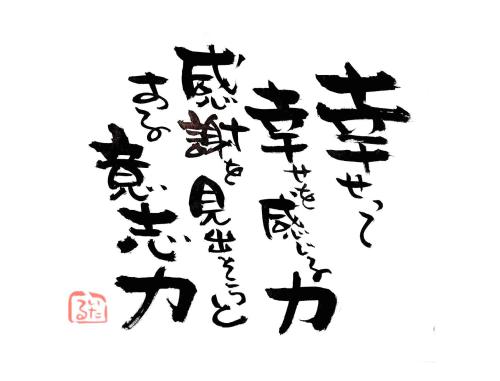 幸せって
幸せを感じる力
感謝を見出そうと
する意志力
いたる